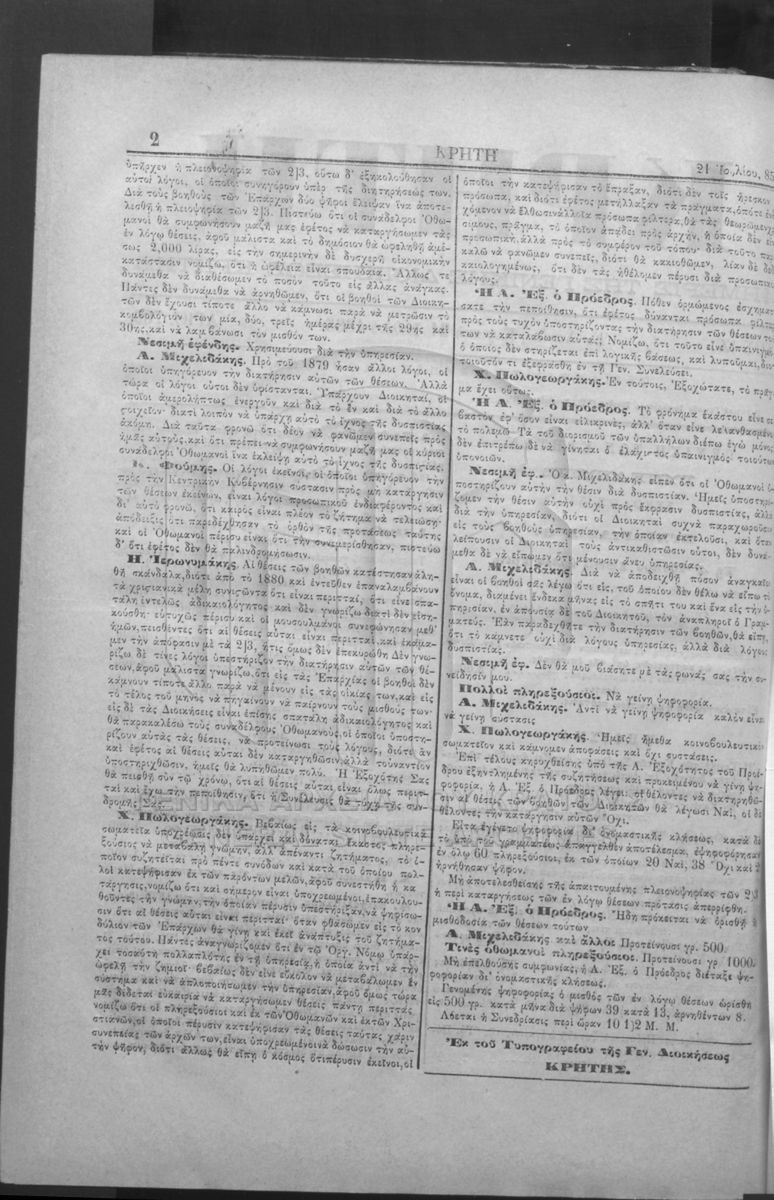 2
ΚΡΗΤΗ
21 Ἰουλίου, 85
ὑπῆρχεν ἡ πλειονοψηφία τῶν 2]3, οὕτω δ' ἐξηκολούθησαν οἱ
αὐτοὶ λόγοι, οἱ ὁποῖοι συνηγόρουν ὑπὲρ τῆς διητηρήσεώς των.
Διὰ τοὺς βοηθοὺς τῶν Ἐπάρχων δύο ψῆφοι ἔλειψαν ἵνα ἀποτε-
λεσθῇ ἡ πλειοψηφία τῶν 2]3. Πιστεύω ὅτι οἱ συνάδελφοι Ὀθω-
μανοὶ θὰ συμφωνήσουν μαζῆ μας ἐφέτος νὰ καταργήσωμεν τὰς
ἐν λόγῳ θέσεις, ἀφοῦ μάλιστα καὶ τὸ δημόσιον θὰ ὠφεληθῇ ἀμέ-
σως 2,000 λίρας, εἰς τὴν σημερινὴν δὲ δυσχερῆ οἰκονομικὴν
κατάστασιν νομίζω, ὅτι ἡ ὠφέλεια εἶναι σπουδαία. Ἄλλως τε
δυνάμεθα νὰ διαθέσωμεν τὸ ποσὸν τοῦτο εἰς ἄλλας ἀνάγκας.
Πάντες δὲν δυνάμεθα νὰ ἀρνηθῶμεν, ὅτι οἱ βοηθοὶ τῶν Διοικη-
τῶν δὲν ἔχουσι τίποτε ἄλλο νὰ κάμνωσι παρὰ νὰ μετρῶσιν τὸ
κομβολόγιόν των μία, δύο, τρεῖς ἡμέρας μέχρι τῆς 29ης καὶ
30ης, καὶ νὰ λαμβάνωσι τὸν μισθόν των.
Νεσιμῆ ἐφένδης. Χρησιμεύουσι διὰ τὴν ὑπηρεσίαν.
Α. Μιχελιδάκης. Πρὸ τοῦ 1879 ἦσαν ἄλλοι λόγοι, οἱ
ὁποῖοι ὑπηγόρευον τὴν διατήρησιν αὐτῶν τῶν θέσεων. Ἀλλὰ
τώρα οἱ λόγοι οὗτοι δὲν ὑφίστανται. Ὑπάρχουν Διοικηταί, οἱ
ὁποῖοι ἀμερολήπτως ἐνεργοῦν καὶ διὰ τὸ ἓν καὶ διὰ τὸ ἄλλο
στοιχεῖον· διατὶ λοιπὸν νὰ ὑπάρχῃ αὐτὸ τὸ ἴχνος τῆς δυσπιστίας
ἀκόμη. Διὰ ταῦτα φρονῶ ὅτι δέον νὰ φανῶμεν συνεπεῖς πρὸς
ἡμᾶς αὐτοὺς, καὶ ὅτι πρέπει νὰ συμφωνήσουν μαζῆ μας οἱ κύριοι
συνάδελφοι Ὀθωμανοὶ ἵνα ἐκλείψῃ αὐτὸ τὸ ἴχνος τῆς δυσπιστίας.
Φούμης. Οἱ λόγοι ἐκεῖνοι, οἱ ὁποῖοι ὑπηγόρευον τὴν
πρὸς τὴν Κεντρικὴν Κυβέρνησιν σύστασιν πρὸς μὴ κατάργησιν
τῶν θέσεων ἐκείνων, εἶναι λόγοι προσωπικοῦ ἐνδιαφέροντος καὶ
δι' αὐτὸ φρονῶ, ὅτι καιρὸς εἶναι πλέον τὸ ζήτημα νὰ τελειώσῃ·
ἀπόδειξις ὅτι παρεδέχθησαν τὸ ὀρθὸν τῆς προτάσεως ταύτης
καὶ οἱ Ὀθωμανοὶ πέρυσι εἶναι ὅτι τὴν συνεμερίσθησαν, πιστεύω
δ' ὅτι ἐφέτος δὲν θὰ παλινδρομήσωσιν.
Η. Ἱερωνυμάκης. Αἱ θέσεις τῶν βοηθῶν κατέστησαν ἀλη-
θῆ σκάνδαλα, διότι ἀπὸ τὸ 1880 καὶ ἐντεῦθεν ἐπαναλαμβάνουν
τὰ χριστιανικὰ μέλη συνιστῶντα ὅτι εἶναι περιτταί, ὅτι εἶνε σπα-
τάλη ἐντελῶς ἀδικαιολόγητος καὶ δὲν γνωρίζω διατὶ δὲν εἰση-
κούσθη· εὐτυχῶς πέρυσι καὶ οἱ μουσουλμάνοι συνεφώνησαν μεθ'
ἡμῶν, πεισθέντες ὅτι αἱ θέσεις αὗται εἶναι περιτταί, καὶ ἐκάμα-
μεν τὴν ἀπόφασιν μὲ τὰ 2]3, ἥτις ὅμως δὲν ἐπεκυρώθη Δὲν γνω-
ρίζω δὲ τίνες λόγοι ὑπεστήριζον τὴν διατήρησιν αὐτῶν τῶν θέ-
σεων, ἀφοῦ μάλιστα γνωρίζω, ὅτι εἰς τὰς Ἐπαρχίας οἱ βοηθοὶ δὲν
κάμνουν τίποτε ἄλλο παρὰ νὰ μένουν εἰς τὰς οἰκίας των, καὶ εἰς
τὸ τέλος τοῦ μηνὸς νὰ πηγαίνουν νὰ παίρνουν τοὺς μισθούς των·
εἰς δὲ τὰς Διοικήσεις εἶναι ἐπίσης σπατάλη ἀδικαιολόγητος καὶ
θὰ παρακαλέσω τοὺς συναδέλφους Ὀθωμανοὺς, οἱ ὁποῖοι ὑποστη-
ρίζουν αὐτὰς τὰς θέσεις, νὰ προτείνωσι τοὺς λόγους, διότι ἂν
καὶ ἐφέτος αἱ θέσεις αὗται δὲν καταργηθῶσιν, ἀλλὰ τοὐναντίον
ὑποστηριχθῶσιν, ἡμεῖς θὰ λυπηθῶμεν πολύ. Ἡ Ἐξοχότης Σας
θὰ πεισθῇ σὺν τῷ χρόνῳ, ὅτι αἱ θέσεις αὗται εἶναι ὅλως περιτ-
ταὶ καὶ ἔχω τὴν πεποίθησιν, ὅτι ἡ Συνέλευσις θὰ τύχῃ τῆς συν-
δρομῆς Σας.
Χ. Πωλογεωργάκης. Βεβαίως εἰς τὰ κοινοβουλευτικὰ
σωματεῖα ὑποχρέωσις δὲν ὑπάρχει καὶ δύναται ἕκαστος πληρε-
ξούσιος νὰ μεταβάλῃ γνώμην, ἀλλ' ἀπέναντι ζητήματος, τὸ ὁ-
ποῖον συζητεῖται πρὸ πέντε συνόδων καὶ κατὰ τοῦ ὁποίου πολ-
λοὶ κατεψήφισαν ἐκ τῶν παρόντων μελῶν, ἀφοῦ συνεστήθη ἡ κα-
τάργησις, νομίζω ὅτι καὶ σήμερον εἶναι ὑποχρεωμένοι, ἐπακολου-
θοῦντες τὴν γνώμην, τὴν ὁποίαν πέρυσιν ὑπεστήριξαν, νὰ ψηφίσω-
σιν ὅτι αἱ θέσεις αὗται εἶναι περιτταί· ὅταν φθάσωμεν εἰς τὸ κον-
δύλιον τῶν Ἐπάρχων θὰ γίνῃ καὶ ἐκεῖ ἀνάπτυξις τοῦ ζητήμα-
τος τούτου. Πάντες ἀναγνωρίζομεν ὅτι ἐν τῷ Ὀργ. Νόμῳ ὑπάρ-
χει τοσαύτη πολλαπλότης ἐν τῇ ὑπηρεσίᾳ, ἡ ὁποία ἀντὶ νὰ τὴν
ὠφελῇ τὴν ζημιοῖ· βεβαίως δὲν εἶνε εὔκολον νὰ μεταβάλωμεν ἓν
σύστημα καὶ νὰ ἁπλοποιήσωμεν τὴν ὑπηρεσίαν, ἀφοῦ ὅμως τώρα
μᾶς δίδεται εὐκαιρία νὰ καταργήσωμεν θέσεις πάντη περιττάς
νομίζω ὅτι οἱ πληρεξούσιοι καὶ ἐκ τῶν Ὀθωμανῶν καὶ ἐκ τῶν Χρι-
στιανῶν, οἱ ὁποῖοι πέρυσιν κατεψήφισαν τὰς θέσεις ταύτας χάριν
συνεπείας τῶν ἀρχῶν των, εἶναι ὑποχρεωμένοι νὰ δώσωσιν τὴν αὐ-
τὴν ψῆφον, διότι ἄλλως θὰ εἴπῃ ὁ κόσμος ὅτι πέρυσιν ἐκεῖνοι, οἱ
ὁποῖοι τὴν κατεψήφισαν τὸ ἔπραξαν, διότι δὲν τοῖς ἤρεσκον
πρόσωπα, καὶ διότι ἐφέτος μετήλλαξαν τὰ πράγματα, ὁπότε
χόμενον νὰ ἔλθωσιν ἄλλα πρόσωπα φίλτερα, θὰ τὰς θεωρῶμεν
σίμους, πρᾶγμα, τὸ ὁποῖον ἀπᾴδει πρὸς ἀρχὴν, ἡ ὁποία δὲν
προσωπική, ἀλλὰ πρὸς τὸ συμφέρον τοῦ τόπου· διὰ τοῦτο
καλῶ νὰ φανῶμεν συνεπεῖς, διότι θὰ κακιοθῶμεν, λίαν δὲ
καιολογημένως, ὅτι δὲν τὰς ἠθέλομεν πέρυσι διὰ προσωπικοὺς
λόγους.
Ἡ Α. Ἐξ. ὁ Πρόεδρος. Πόθεν ὁρμώμενος ἐσχημα-
σατε τὴν πεποίθησιν, ὅτι ἐφέτος δύνανται πρόσωπα
πρὸς τοὺς τυχὸν ὑποστηρίζοντας τὴν διατήρησιν τῶν θέσεων
των νὰ καταλάβωσιν αὐτάς; Νομίζω, ὅτι τοῦτο εἶνε ὑπαινιγ
ὁ ὁποῖος δὲν στηρίζεται ἐπὶ λογικῆς βάσεως, καὶ λυποῦμαι,
τοιοῦτόν τι ἐξεφράσθη ἐν τῇ Γεν. Συνελεύσει.
Χ. Πωλογεωργάκης. Ἐν τούτοις, Ἐξοχώτατε, τὸ πρᾶγ-
μα ἔχει οὕτως.
Ἡ Α. Ἐξ. ὁ Πρόεδρος. Τὸ φρόνημα ἑκάστου εἶνε σε-
βαστὸν ἐφ' ὅσον εἶναι εἰλικρινὲς, ἀλλ' ὅταν εἶνε λελανθασμένον
τὸ πολεμῶ Τὰ τοῦ διορισμοῦ τῶν ὑπαλλήλων διέπω ἐγὼ μόνος
δὲν ἐπιτρέπω δὲ νὰ γίνηται ὁ ἐλάχιστος ὑπαινιγμὸς τοιούτων
ὑπονοιῶν.
Νεσιμῆ ἐφ. Ὁ κ. Μιχελιδάκης εἶπεν ὅτι οἱ Ὀθωμανοὶ ὑ-
ποστηρίζουν αὐτὴν τὴν θέσιν διὰ δυσπιστίαν. Ἡμεῖς ὑποστηρί-
ζομεν τὴν θέσιν αὐτὴν οὐχὶ πρὸς ἔκφρασιν δυσπιστίας, ἀλλὰ
διὰ τὴν ὑπηρεσίαν, διότι οἱ Διοικηταὶ συχνὰ παραχωροῦσι
εἰς τοὺς βοηθοὺς ὑπηρεσίαν, τὴν ὁποίαν ἐκτελοῦσι, καὶ ὅταν
λείπουσιν οἱ Διοικηταὶ τοὺς ἀντικαθιστῶσιν οὗτοι, δὲν δυνά-
μεθα δὲ νὰ εἴπωμεν ὅτι μένουσιν ἄνευ ὑπηρεσίας.
Α. Μιχελιδάκης. Διὰ νὰ ἀποδειχθῇ πόσον ἀναγκαῖοι
εἶναι οἱ βοηθοὶ σᾶς λέγω ὅτι εἷς, τοῦ ὁποίου δὲν θέλω νὰ εἴπω τὸ
ὄνομα, διαμένει ἕνδεκα μῆνας εἰς τὸ σπῆτι του καὶ ἕνα εἰς τὴν ὑ-
πηρεσίαν, ἐν ἀπουσίᾳ δὲ τοῦ Διοικητοῦ, τὸν ἀναπληροῖ ὁ Γραμ-
ματεύς. Ἐὰν παραδεχθῆτε τὴν διατήρησιν τῶν βοηθῶν, θὰ εἴπῃ,
ὅτι τὸ κάμνετε οὐχὶ διὰ λόγους ὑπηρεσίας, ἀλλὰ διὰ λόγους
δυσπιστίας.
Νεσιμῆ ἐφ. Δὲν θὰ μοῦ βιάσητε μὲ τὰς φωνάς σας τὴν συ-
νείδησίν μου.
Πολλοὶ πληρεξούσιοι. Νὰ γείνῃ ψηφοφορία.
Α. Μιχελιδάκης. Ἀντὶ νὰ γείνῃ ψηφοφορία καλὸν εἶναι
νὰ γείνῃ σύστασις
Χ. Πωλογεωργάκης. Ἡμεῖς ἤμεθα κοινοβουλευτικὸν
σωματεῖον καὶ κάμνομεν ἀποφάσεις καὶ ὄχι συστάσεις.
Ἐπὶ τέλους κηρυχθείσης ὑπὸ τῆς Α. Ἐξοχότητος τοῦ Προέ-
δρου ἐξηντλημένης τῆς συζητήσεως καὶ προκειμένου νὰ γίνῃ ψη-
φοφορία, ἡ Α. Ἐξ. ὁ Πρόεδρος λέγει· οἱ θέλοντες νὰ διατηρηθῶ-
σιν αἱ θέσεις τῶν βοηθῶν τῶν Διοικητῶν θὰ λέγωσι Ναί, οἱ δὲ
θέλοντες τὴν κατάργησιν αὐτῶν Ὄχι.
Εἶτα ἐγένετο ψηφοφορία δι' ὀνομαστικῆς κλήσεως, κατὰ δὲ
τὸ ὑπὸ τοῦ γραμματέως ἀπαγγελθὲν ἀποτέλεσμα, ἐψηφοφόρησαν
ἐν ὅλῳ 60 πληρεξούσιοι, ἐκ τῶν ὁποίων 20 Ναί, 38 Ὄχι καὶ 2
ἠρνήθησαν ψῆφον.
Μὴ ἀποτελεσθείσης τῆς ἀπαιτουμένης πλειονοψηφίας τῶν 2]3
ἡ περὶ καταργήσεως τῶν ἐν λόγῳ θέσεων πρότασις ἀπερρίφθη.
Ἡ Α. Ἐξ. ὁ Πρόεδρος. Ἤδη πρόκειται νὰ ὁρισθῇ ἡ
μισθοδοσία τῶν θέσεων τούτων
Α. Μιχελιδάκης καὶ ἄλλοι Προτείνουσι γρ. 500.
Τινὲς ὀθωμανοὶ πληρεξούσιοι. Προτείνουσι γρ. 1000.
Μὴ ἐπελθούσης συμφωνίας, ἡ Α. Ἐξ. ὁ Πρόεδρος διέταξε ψη-
φοφορίαν δι' ὀνομαστικῆς κλήσεως.
Γενομένης ψηφοφορίας ὁ μισθὸς τῶν ἐν λόγῳ θέσεων ὡρίσθη
εἰς 500 γρ. κατὰ μῆνα διὰ ψήφων 39 κατὰ 13, ἀρνηθέντων 8.
Λύεται ἡ Συνεδρίασις περὶ ὥραν 10 1)2 Μ. Μ.
Ἐκ τοῦ Τυπογραφείου τῆς Γεν. Διοικήσεως
ΚΡΗΤΗΣ.